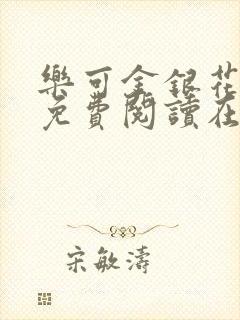 樂可金銀花
免費閱讀在
宋敏濤